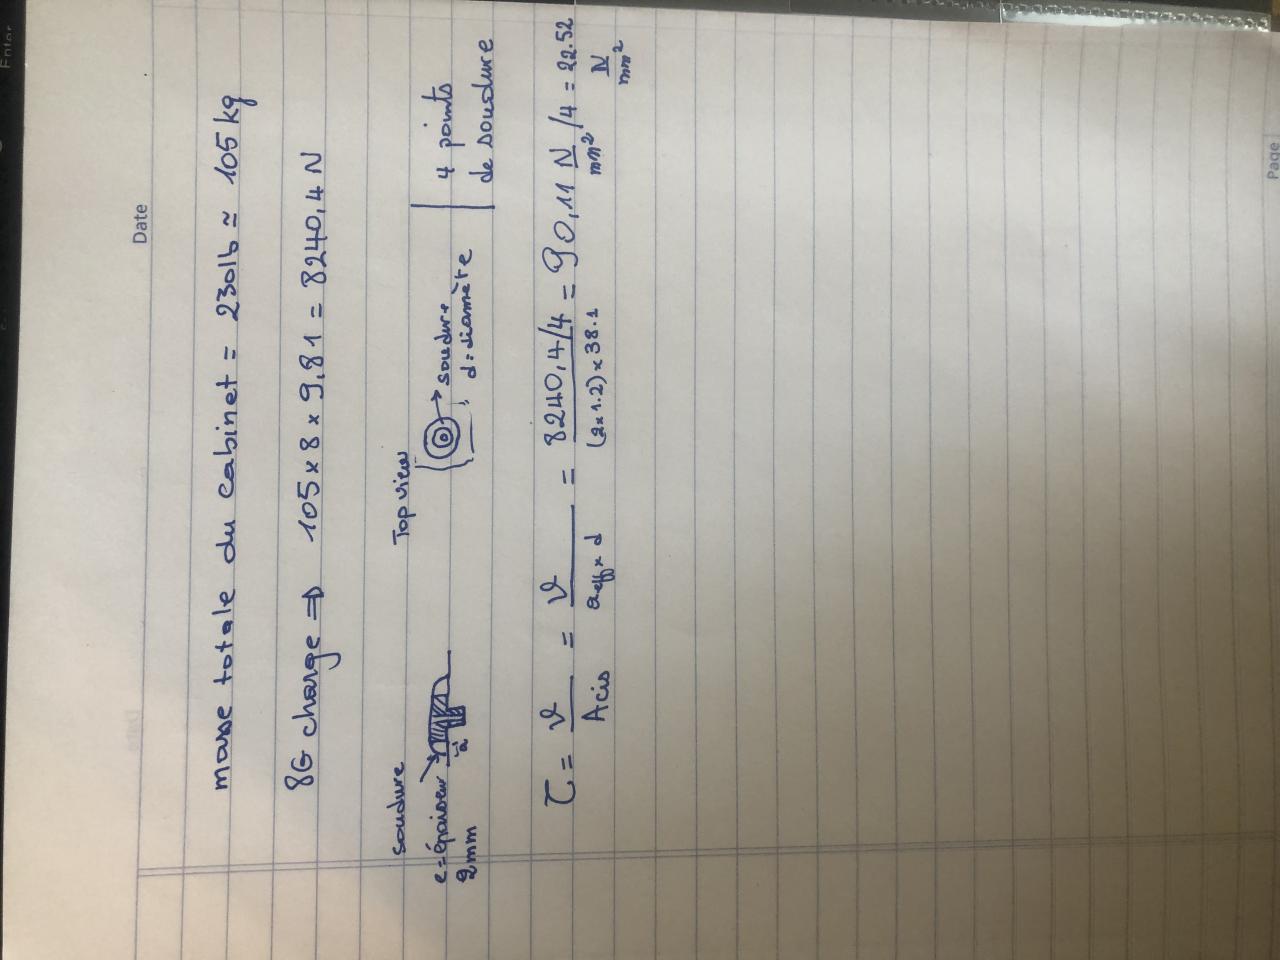 Date
masse totale du cabinet = 230lb ≃ 105 kg
8G charge ⇒ 105 x 8 x 9,81 = 8240,4 N
soudure
Top view
e = épaisseur
2mm
a
→ soudure
d: diamètre
4 points
de soudure
τ = V / Acis = V / aeff x d = 8240,4/4 / (2x1.2) x 38.1 = 90,11 N/mm² /4 = 22.52 N/mm²
Page
Enter